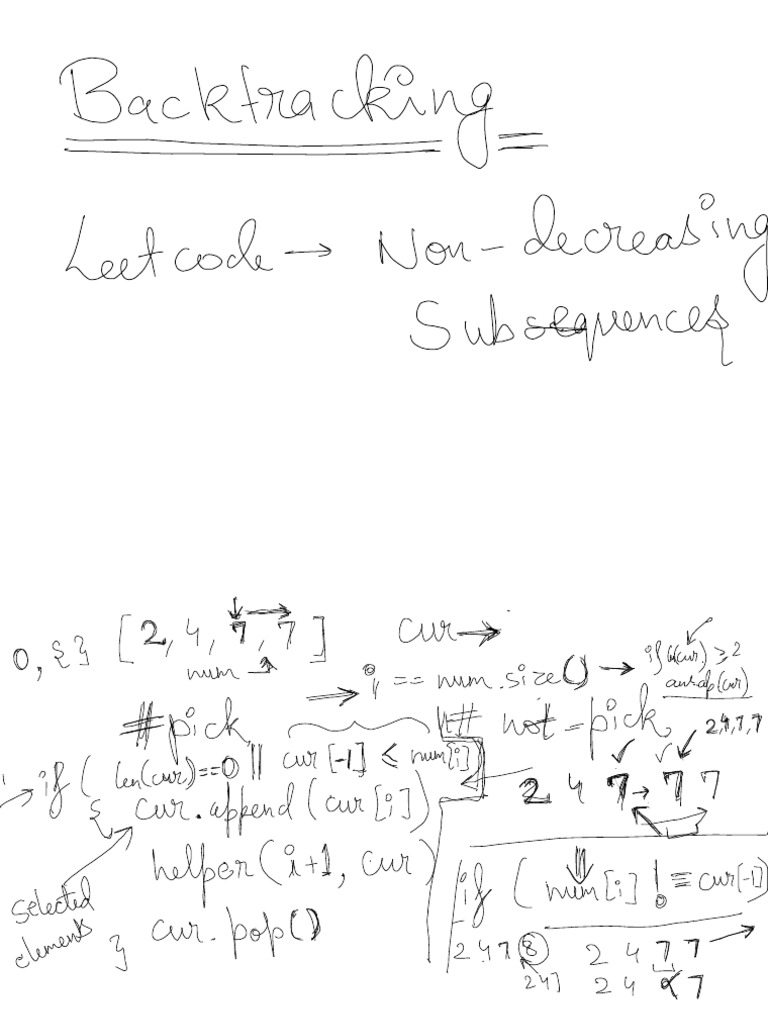 Backtracking
Leetcode → Non-decreasing
Subsequences
0, {} [2, 4, 7, 7] cur →
num
→ i == num.size() → if (len(cur) ≥ 2
ans.ap(cur)
# pick # not-pick 2,4,7,7
if ( len(cur)==0 || cur[-1] ≤ num[i]
2 4 7 → 7 7
{ cur.append(cur[i])
helper(i+1, cur)
if ( num[i] != cur[-1]
selected
elements
} cur.pop()
2 4 7 8 2 4 7 7 →
2 4 7 2 4 7